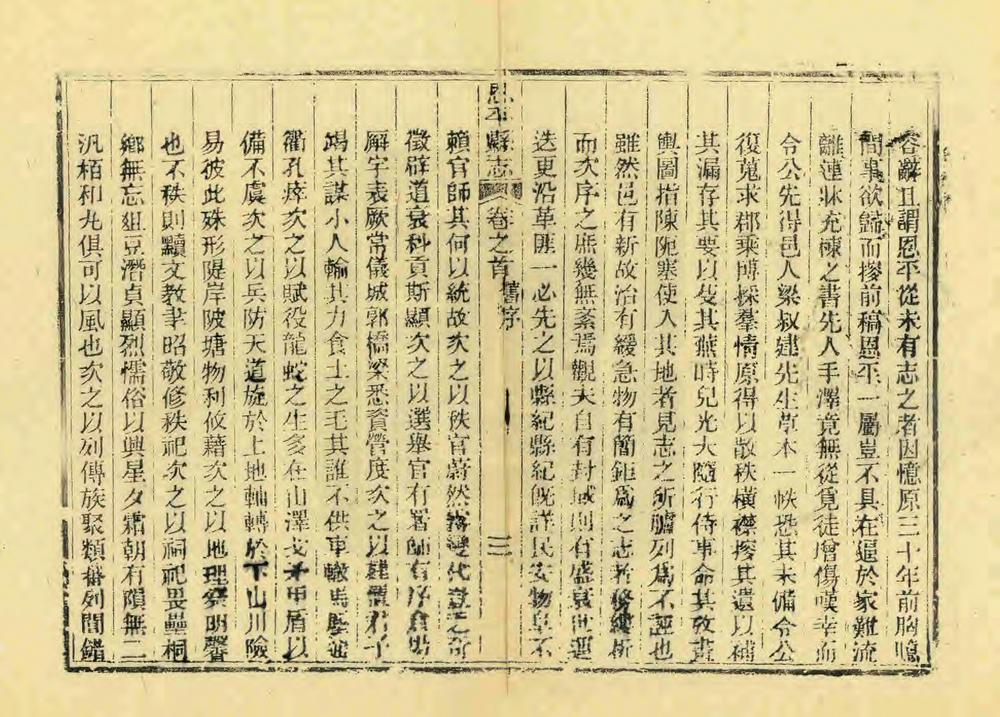 容辭且謂恩平從未有志之者因憶原三十年前胸臆
間事欲歸而搜前稿恩平一屬豈不具在逼於家難流
離連牀充棟之書先人手澤竟無從覓徒增傷嘆幸而
令公先得邑人梁叔建先生草本一帙恐其未備令公
復蒐求郡乘博採羣情原得以散秩橫襟搜其遺以補
其漏存其要以芟其蕪時兒光大隨行侍事命其攷畫
輿圖指陳阨塞使入其地者見志之所臚列為不誣也
雖然邑有新故治有緩急物有簡鉅為之志者務縷析
而次序之庶幾無紊焉觀夫自有封域則有盛衰世運
迭更沿革匪一必先之以縣紀縣紀旣詳民安物阜不
恩平縣志 卷之首 舊序 三
賴官師其何以統故次之以秩官蔚然豹變代產之奇
徵辟道衰科貢斯顯次之以選舉官有署師有序倉場
廨宇表厥常儀城郭橋梁悉資營度次之以建置君子
竭其謀小人輸其力食土之毛其誰不供車轍馬塵通
衢孔瘁次之以賦役龍蛇之生多在山澤戈矛甲盾以
備不虞次之以兵防天道旋於上地軸轉於下山川險
易彼此殊形隄岸陂塘物利攸藉次之以地理察明馨
也不秩則黷文教聿昭敬修秩祀次之以祠祀畏壘桐
鄉無忘俎豆潛貞顯烈懦俗以興星夕霜朝有隕無二
汎栢和丸俱可以風也次之以列傳族聚類分列間錯